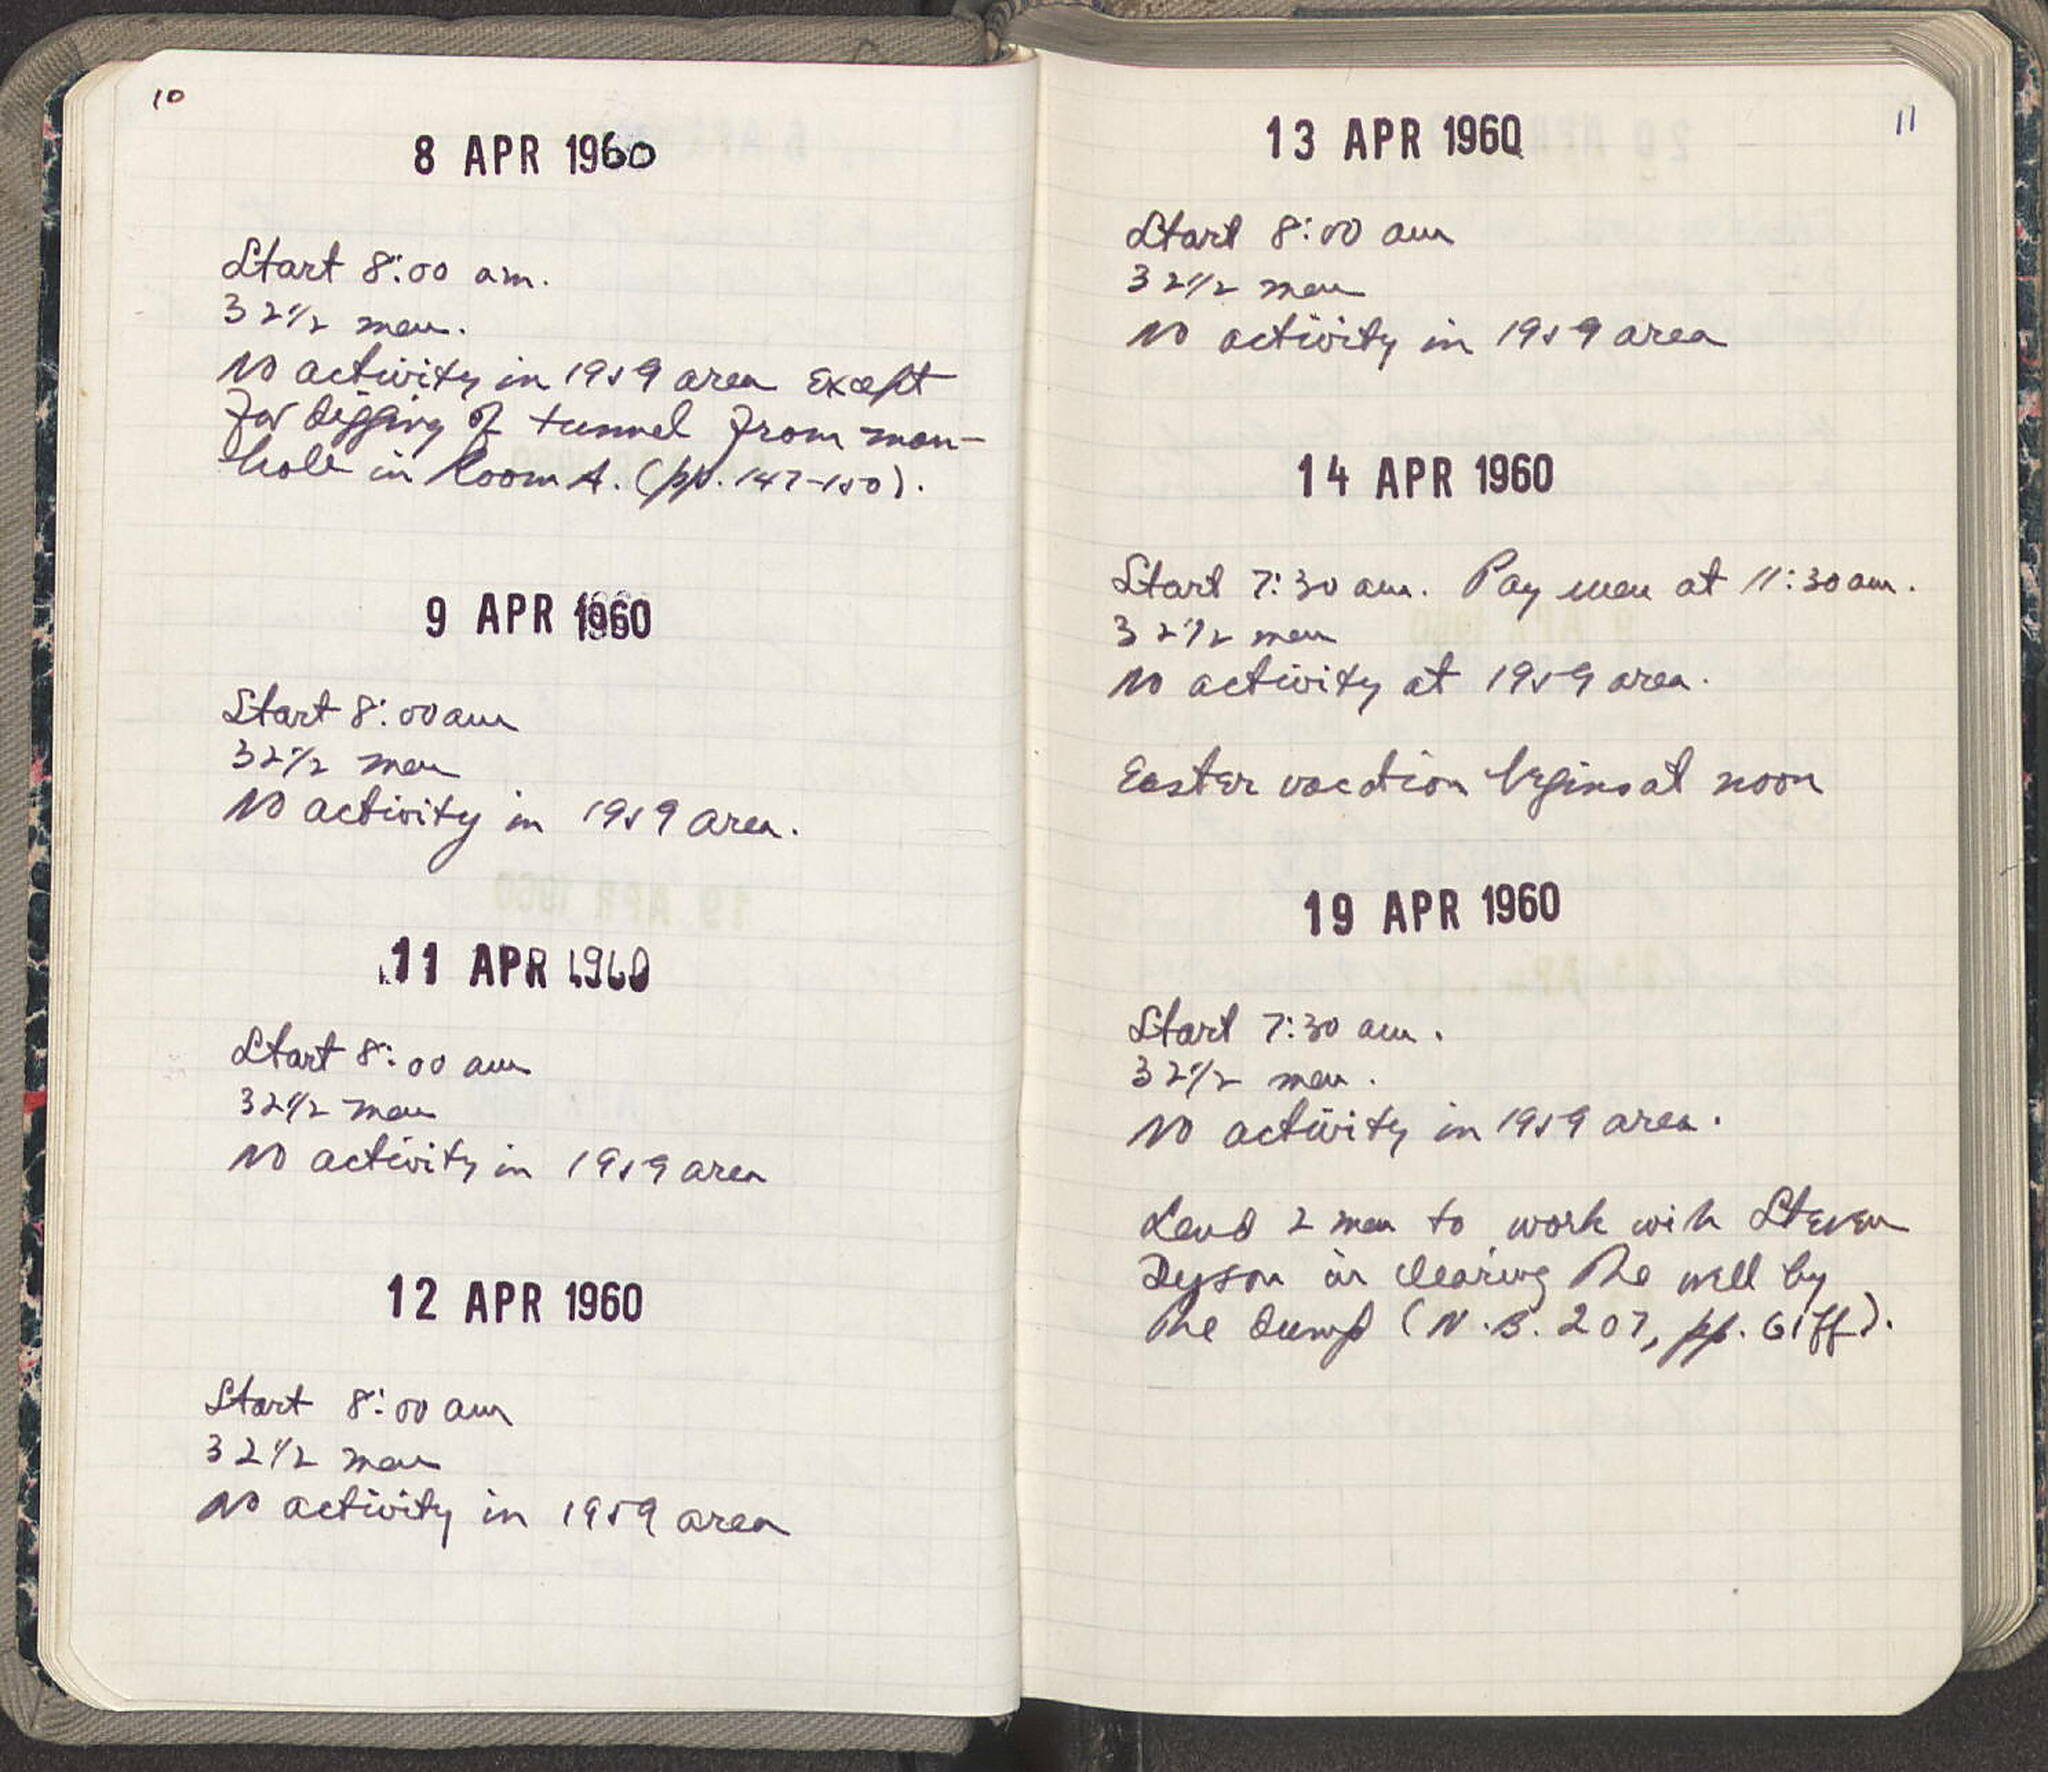 10
8 APR 1960
Start 8:00 am.
32 1/2 men.
No activity in 1959 area except
for digging of tunnel from man-
hole in Room A. (pp. 147-150).
9 APR 1960
Start 8:00 am
32 1/2 men
No activity in 1959 area.
11 APR 1960
Start 8:00 am
32 1/2 men
No activity in 1959 area
12 APR 1960
Start 8:00 am
32 1/2 men
No activity in 1959 area
11
13 APR 1960
Start 8:00 am
32 1/2 men
No activity in 1959 area
14 APR 1960
Start 7:30 am. Pay men at 11:30 am.
32 1/2 men
No activity at 1959 area.
Easter vacation begins at noon
19 APR 1960
Start 7:30 am.
32 1/2 men.
No activity in 1959 area.
Lend 2 men to work with Steven
Dyson in clearing the well by
the dump (N.B. 207, pp. 61ff).